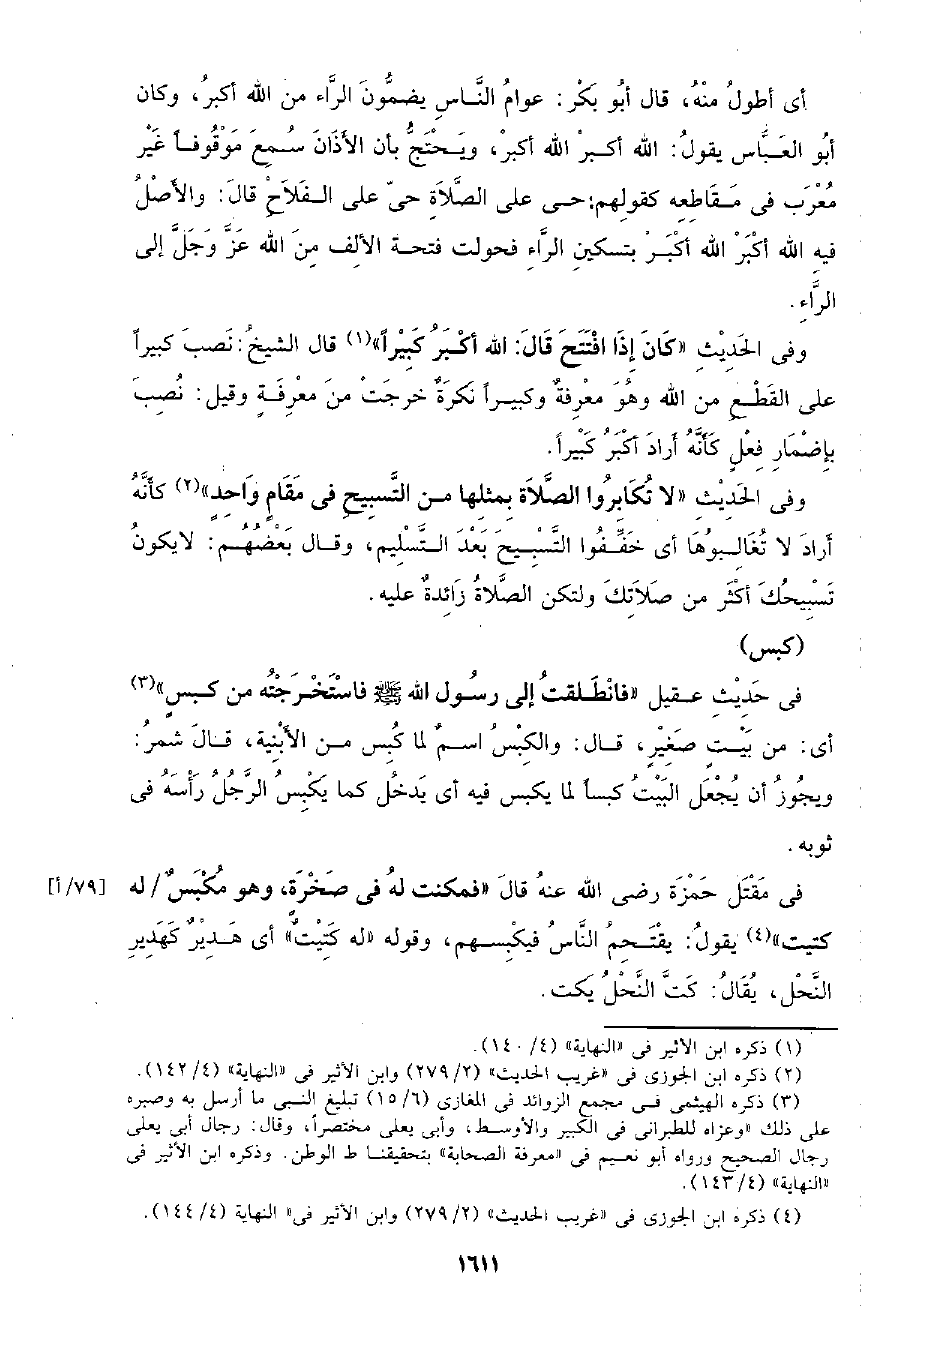 أى أطولُ منْهُ، قال أبُو بَكْر: عوامُ النَّاسِ يضمُّونَ الرَّاء من الله أكبرُ، وكان
أبُو العَبَّاس يقولُ: الله أكـبرْ الله أكبرْ، ويَـحْتَجُّ بأن الأذَانَ سُـمعَ مَوْقُوفـاً غَيْر
مُعْرَب فى مَـقَاطعِه كقولهم: حـى على الصَّلَاةِ حىّ على الـفَلَاحْ قالَ: والأصْلُ
فيه الله أكْبَرْ الله أكْبَـرْ بتسكينِ الرَّاء فحولت فتحـة الألف منَ الله عَزَّ وَجَلَّ إلى
الرَّاءِ.
وفى الحَديْثِ «كَانَ إذَا افْتَتَحَ قَالَ: الله أكْبَرُ كَبيْراً»(١) قال الشيخُ: نَصبَ كبيراً
على القَطْعِ من الله وهُوَ معْرفةٌ وكبيـراً نَكرَةٌ خرجتْ منَ معْرفَـةٍ وقيل: نُصِبَ
بإضْمَارِ فعْلٍ كَأنَّهُ أرادَ أكْبَرُ كَبيْراً.
وفى الحَديْثِ «لا تُكَابرُوا الصَّلَاةَ بمثلها مـن التَّسبيحِ فى مَقَامٍ وَاحِدٍ»(٢) كأنَّهُ
أرادَ لا تُغَالـبوُهَا أى خَفِّـفُوا التَّسْبِيـحَ بَعْدَ الـتَّسْلِيمِ، وقـال بَعْضُهُـم: لايكونُ
تَسْبِيحُكَ أكْثَر من صَلَاتِكَ ولتكن الصَّلَاةُ زَائدةٌ عليه.
(كبس)
فى حَديْثِ عـقيل «فانْطَلَقتُ إلى رسُول الله ﷺ فاسْتَخْرَجتُه من كـبسٍ»(٣)
أى: من بَيْـتٍ صَغيْرٍ، قـال: والكبْسُ اسـمٌ لما كُبس مـن الأبْنية، قـالَ شمرُ:
ويجُوزُ أن يُجْعَل البَيْتُ كبساً لما يكبس فيه أى يَدخلُ كما يَكْبِسُ الرَّجُلُ رَأْسَهُ فى
ثوبه.
فى مَقْتَلِ حَمْزَة رضى الله عنهُ قالَ «فمكنت لهُ فى صَخْرَةٍ، وهو مُكَبِّسٌ / له [٧٩/ أ]
كتيت»(٤) يقولُ: يقْتَـحمُ النَّاسُ فيكبْـسهم، وقوله «له كَتيْتٌ» أى هَـديْرٌ كَهَديرِ
النَّحْلِ، يُقَالُ: كَتَّ النَّحْلُ يكت.
(١) ذكره ابن الأثير فى «النهاية» (٤/ ١٤٠).
(٢) ذكره ابن الجوزى فى «غريب الحديث» (٢/ ٢٧٩) وابن الأثير فى «النهاية» (٤/ ١٤٢).
(٣) ذكره الهيثمى فـى مجمع الزوائد فى المغازى (٦/ ١٥) تبليغ النبى ما أرسل به وصبره
على ذلك «وعزاه للطبرانى فى الكبير والأوسط، وأبى يعلى مختصراً، وقال: رجال أبى يعلى
رجال الصحيح ورواه أبو نعيـم فى «معرفة الصحابة» بتحقيقنـا ط الوطن. وذكره ابن الأثير فى
«النهاية» (٤/ ١٤٣).
(٤) ذكره ابن الجوزى فى «غريب الحديث» (٢/ ٢٧٩) وابن الأثير فى« النهاية (٤/ ١٤٤).
١٦١١